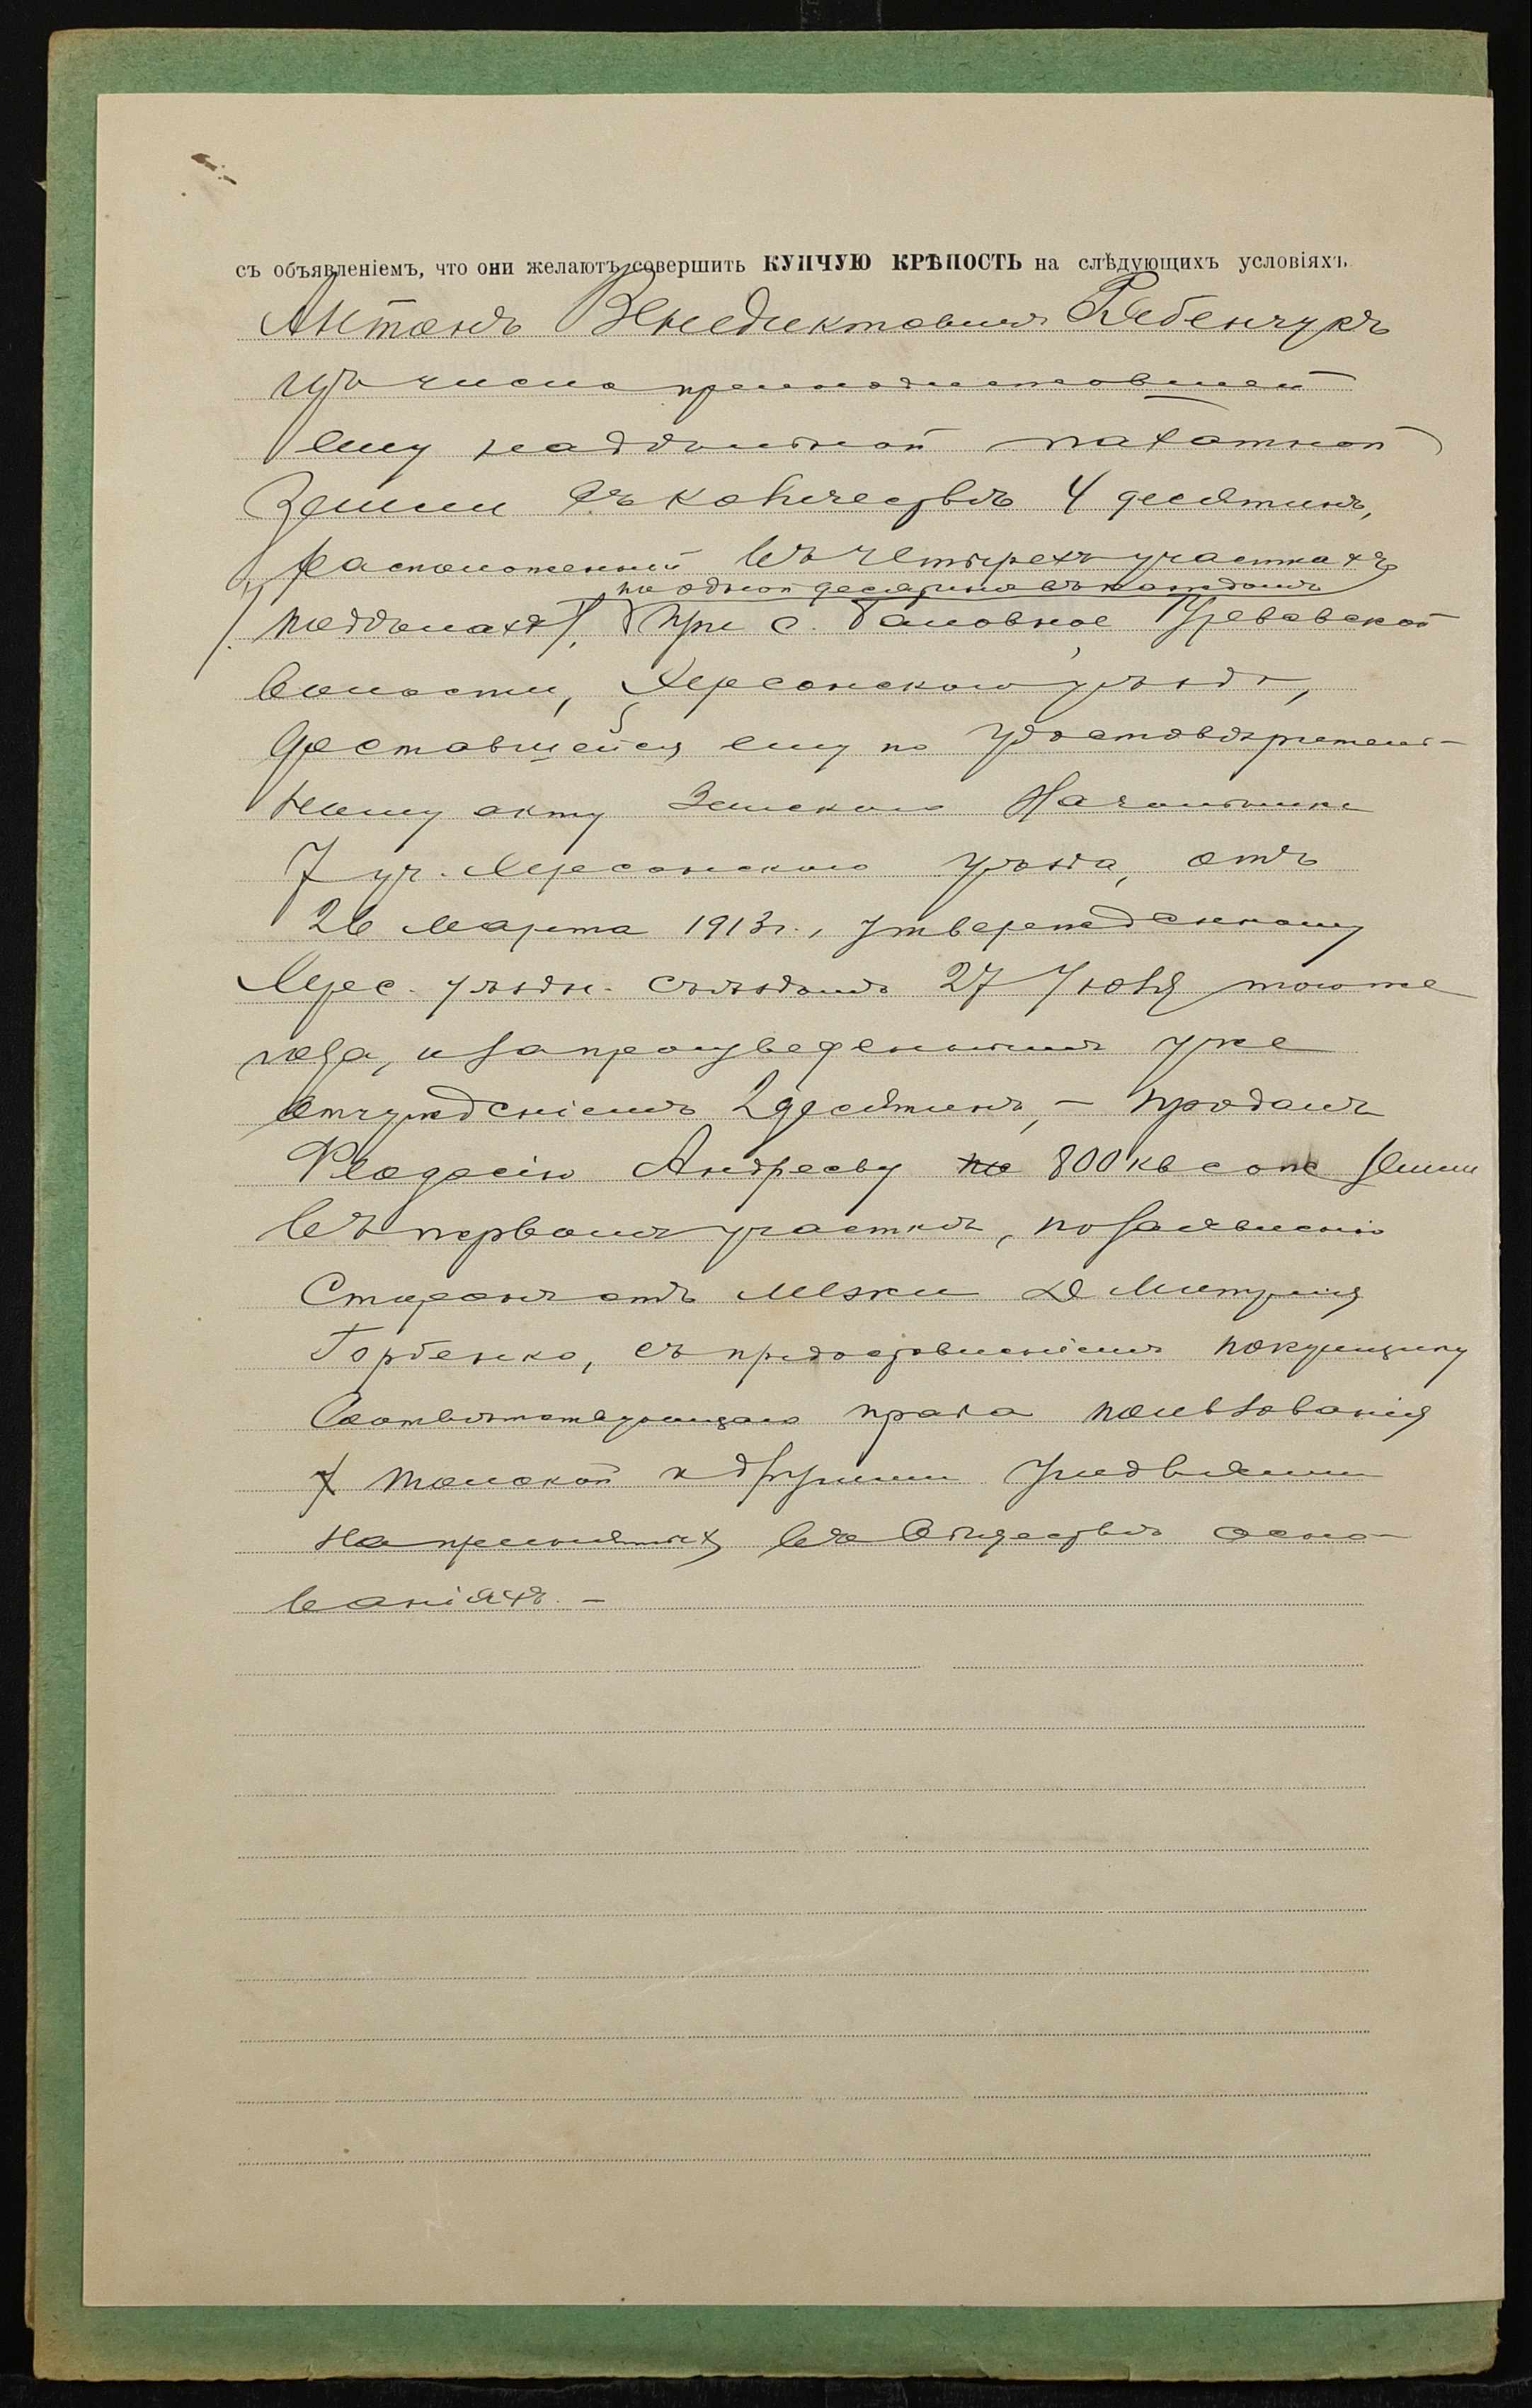 съ объявленіемъ, что они желаютъ совершить КУПЧУЮ КРѢПОСТЬ на слѣдующихъ условіяхъ
Антонъ Венедиктовичъ Рябенчукъ
изъ числа принадлежавшей
ему надѣльной пахатной
земли въ количествѣ 4 десятинъ,
расположенной въ четырехъ участкахъ
по одной десятинѣ въ каждомъ
при с. Баловное
волости, Херсонскаго уѣзда,
доставшейся ему по удостовѣритель-
ному акту Земскаго Начальника
7 уч. Херсонскаго уѣзда, отъ
26 Марта 1913г., утвержденному
Херс. уѣздн. съѣздомъ 27 Іюня того же
года, и за произведеннымъ уже
отчужденіемъ 2 десятинъ, - продалъ
Феодосію Андрееву 800 кв саж земли
въ первомъ участкѣ, по заявленію
сторонъ отъ межи Дмитрія
Горбенко, съ предоставленіемъ покупщику
соотвѣтствующаго права пользованія
толокой и другими угодьями
на принятыхъ въ Обществѣ осно-
ваніяхъ. -